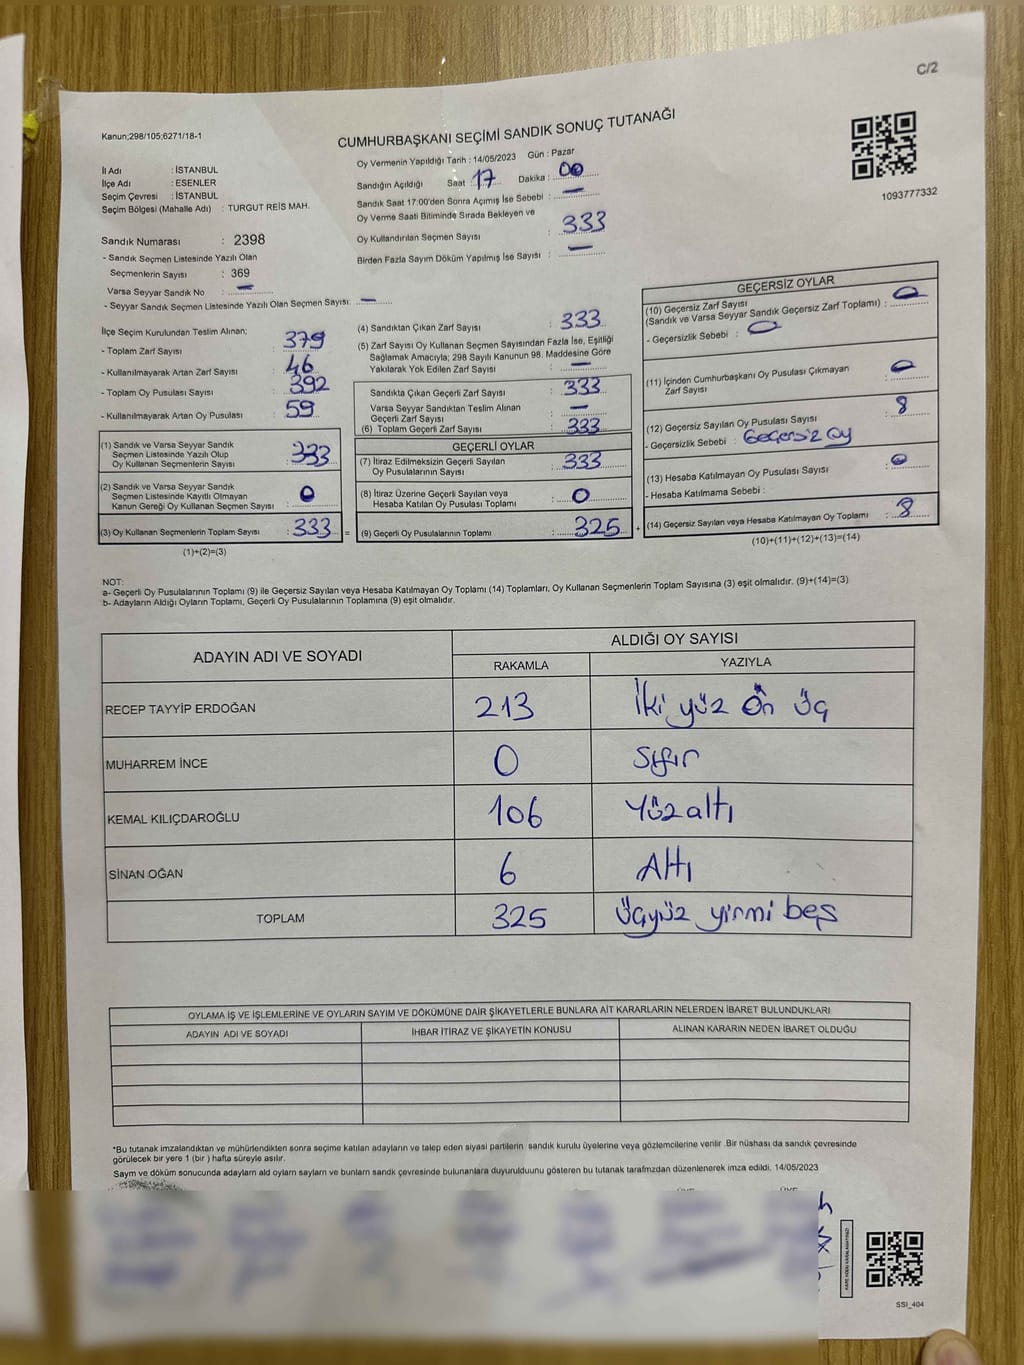 C/2
Kanun;298/105;6271/18-1
CUMHURBAŞKANI SEÇİMİ SANDIK SONUÇ TUTANAĞI
1093777332
İl Adı : İSTANBUL
İlçe Adı : ESENLER
Seçim Çevresi : İSTANBUL
Seçim Bölgesi (Mahalle Adı) : TURGUT REİS MAH.
Sandık Numarası : 2398
- Sandık Seçmen Listesinde Yazılı Olan
Seçmenlerin Sayısı : 369
Varsa Seyyar Sandık No : —
- Seyyar Sandık Seçmen Listesinde Yazılı Olan Seçmen Sayısı: —
Oy Vermenin Yapıldığı Tarih : 14/05/2023 Gün : Pazar
Sandığın Açıldığı Saat : 17 Dakika : 00
Sandık Saat 17:00'den Sonra Açımış İse Sebebi : —
Oy Verme Saati Bitiminde Sırada Bekleyen ve
Oy Kullandırılan Seçmen Sayısı : 333
Birden Fazla Sayım Döküm Yapılmış İse Sayısı : —
İlçe Seçim Kurulundan Teslim Alınan;
- Toplam Zarf Sayısı : 379
- Kullanılmayarak Artan Zarf Sayısı : 46
- Toplam Oy Pusulası Sayısı : 392
- Kullanılmayarak Artan Oy Pusulası : 59
(1) Sandık ve Varsa Seyyar Sandık
Seçmen Listesinde Yazılı Olup
Oy Kullanan Seçmenlerin Sayısı : 333
(2) Sandık ve Varsa Seyyar Sandık
Seçmen Listesinde Kayıtlı Olmayan
Kanun Gereği Oy Kullanan Seçmen Sayısı : 0
(3) Oy Kullanan Seçmenlerin Toplam Sayısı : 333 =
(1)+(2)=(3)
(4) Sandıktan Çıkan Zarf Sayısı : 333
(5) Zarf Sayısı Oy Kullanan Seçmen Sayısından Fazla İse, Eşitliği
Sağlamak Amacıyla; 298 Sayılı Kanunun 98. Maddesine Göre
Yakılarak Yok Edilen Zarf Sayısı : —
Sandıkta Çıkan Geçerli Zarf Sayısı : 333
Varsa Seyyar Sandıktan Teslim Alınan
Geçerli Zarf Sayısı : —
(6) Toplam Geçerli Zarf Sayısı : 333
GEÇERLİ OYLAR
(7) İtiraz Edilmeksizin Geçerli Sayılan
Oy Pusulalarının Sayısı : 333
(8) İtiraz Üzerine Geçerli Sayılan veya
Hesaba Katılan Oy Pusulası Toplamı : 0
(9) Geçerli Oy Pusulalarının Toplamı : 325 +
GEÇERSİZ OYLAR
(10) Geçersiz Zarf Sayısı
(Sandık ve Varsa Seyyar Sandık Geçersiz Zarf Toplamı) : 0
- Geçersizlik Sebebi : 0
(11) İçinden Cumhurbaşkanı Oy Pusulası Çıkmayan
Zarf Sayısı : 0
(12) Geçersiz Sayılan Oy Pusulası Sayısı : 8
- Geçersizlik Sebebi : Geçersiz Oy
(13) Hesaba Katılmayan Oy Pusulası Sayısı : 0
- Hesaba Katılmama Sebebi :
(14) Geçersiz Sayılan veya Hesaba Katılmayan Oy Toplamı : 8
(10)+(11)+(12)+(13)=(14)
NOT:
a- Geçerli Oy Pusulalarının Toplamı (9) ile Geçersiz Sayılan veya Hesaba Katılmayan Oy Toplamı (14) Toplamları, Oy Kullanan Seçmenlerin Toplam Sayısına (3) eşit olmalıdır. (9)+(14)=(3)
b- Adayların Aldığı Oyların Toplamı, Geçerli Oy Pusulalarının Toplamına (9) eşit olmalıdır.
ADAYIN ADI VE SOYADI ALDIĞI OY SAYISI
RAKAMLA YAZIYLA
RECEP TAYYİP ERDOĞAN 213 İki yüz On üç
MUHARREM İNCE 0 Sıfır
KEMAL KILIÇDAROĞLU 106 Yüz altı
SİNAN OĞAN 6 Altı
TOPLAM 325 Üçyüz yirmi beş
OYLAMA İŞ VE İŞLEMLERİNE VE OYLARIN SAYIM VE DÖKÜMÜNE DAİR ŞİKAYETLERLE BUNLARA AİT KARARLARIN NELERDEN İBARET BULUNDUKLARI
ADAYIN ADI VE SOYADI İHBAR İTİRAZ VE ŞİKAYETİN KONUSU ALINAN KARARIN NEDEN İBARET OLDUĞU
*Bu tutanak imzalandıktan ve mühürlendikten sonra seçime katılan adayların ve talep eden siyasi partilerin sandık kurulu üyelerine veya gözlemcilerine verilir .Bir nüshası da sandık çevresinde
görülecek bir yere 1 (bir ) hafta süreyle asılır.
Sayım ve döküm sonucunda adayların ald oyların sayların ve bunların sandık çevresinde bulunanlara duyurulduunu gösteren bu tutanak tarafmzdan düzenlenerek imza edildi. 14/05/2023
SSI_404